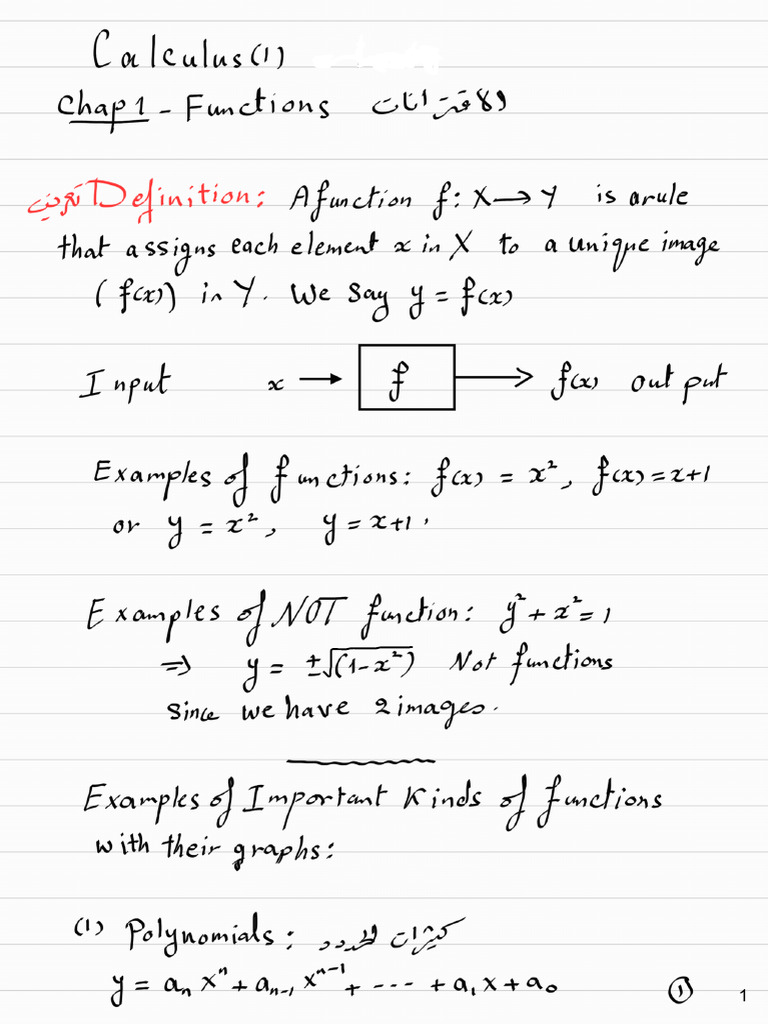 Calculus(1)
Chap 1 - Functions الاقترانات
تعريف Definition: A function f: X → Y is a rule
that assigns each element x in X to a unique image
(f(x)) in Y. We say y = f(x)
Input x → f → f(x) output
Examples of functions: f(x) = x², f(x) = x+1
or y = x², y = x+1.
Examples of NOT function: y² + x² = 1
⇒ y = ±√(1-x²) Not functions
since we have 2 images.
Examples of Important Kinds of functions
with their graphs:
(1) Polynomials: كثيرات الحدود
y = aₙ xⁿ + aₙ₋₁ xⁿ⁻¹ + --- + a₁x + a₀ ① 1